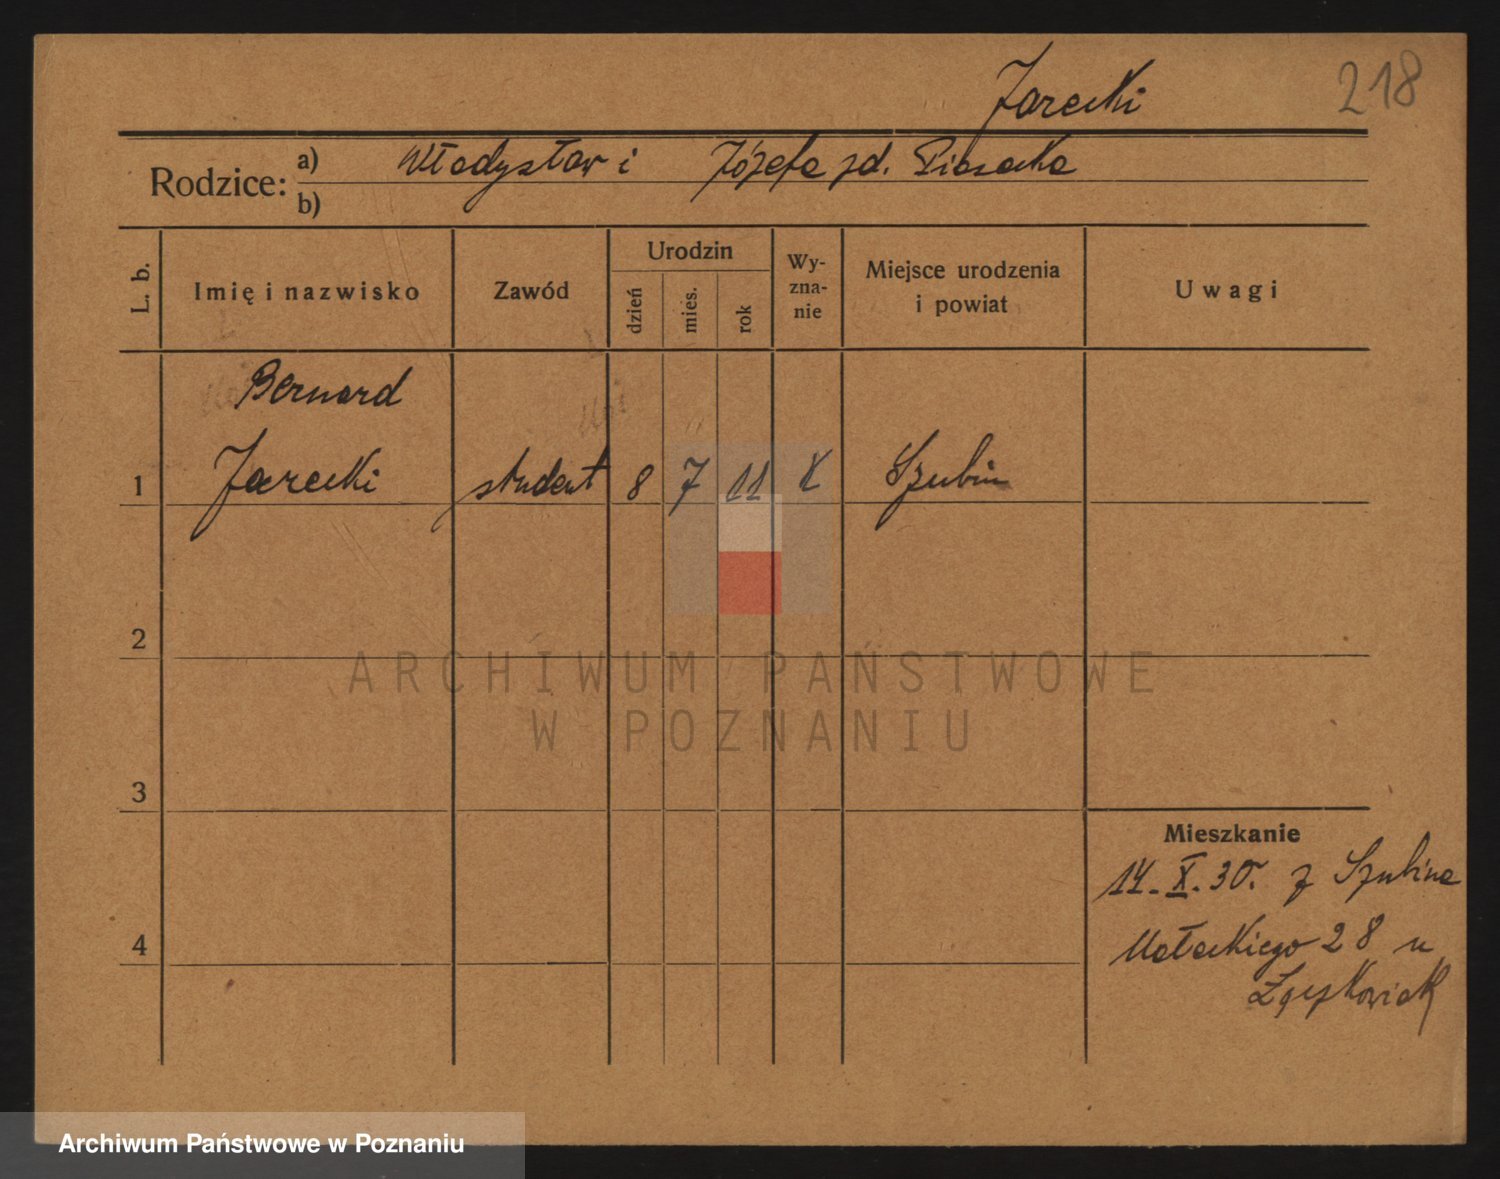 Jarecki
218
Rodzice:
a) Władysław i Józefa zd. Piasecka
b)
L. b.
Imię i nazwisko
Zawód
Urodzin
dzień
mies.
rok
Wy-
zna-
nie
Miejsce urodzenia
i powiat
Uwagi
Bernard
1 Jarecki student 8 7 11 K Szubin
2
ARCHIWUM PAŃSTWOWE
W POZNANIU
3
Mieszkanie
14. X. 30. z Szubina
4
Małeckiego 28 u
Archiwum Państwowe w Poznaniu